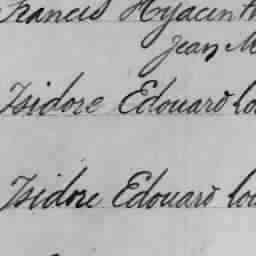 Francis Hyacinth
Jean M
Isidore Edouard Lou
Isidore Edouard Lou